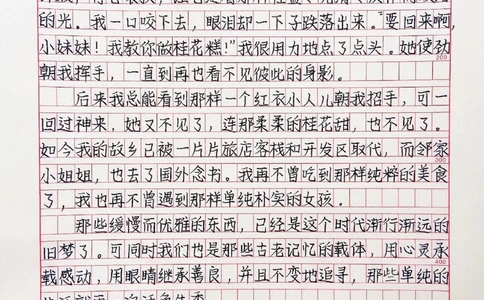 的光。我一口咬下去，眼泪却一下子跌落出来。“要回来啊，
小妹妹！我教你做桂花糕！”我很用力地点了点头。她使劲
200
朝我挥手，一直到再也看不见彼此的身影。
后来我总能看到那样一个红衣小人儿朝我招手，可一
回过神来，她又不见了，连那柔柔的桂花甜，也不见了。
如今我的故乡已被一片片旅店客栈和开发区取代，而邻家
300
小姐姐，也去了国外念书。我再不曾吃到那样纯粹的美食
了，我也再不曾遇到那样单纯朴实的女孩。
那些缓慢而优雅的东西，已经是这个时代渐行渐远的
旧梦了。可同时我们也是那些古老记忆的载体，用心灵承
400
载感动，用眼睛继承善良，并且不变地追寻，那些单纯的